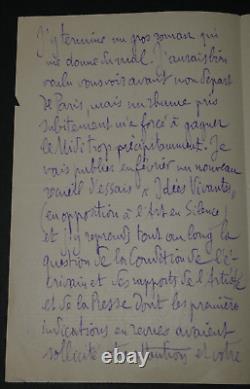 J'y termine un gros roman qui
me donne du mal. J'aurais bien
voulu vous voir avant mon départ
de Paris, mais un rhume pris
subitement m'a forcé à gagner
le Midi trop précipitamment. Je
vais publier en février un nouveau
recueil d'essais "Idées Vivantes",
(en opposition à l'Art en Silence)
et j'y reprends tout au long la
question de la Condition de l'é-
crivain et des rapports de l'Artiste
et de la Presse dont les premières
indications en revues avaient
sollicité attention et votre